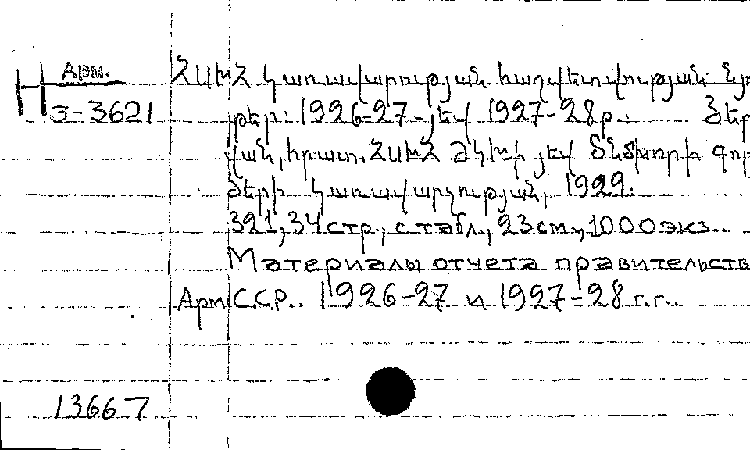 Арм.
Н
з-3621
ՀՍԽՀ կառավարության հաղվետվության նյու
թեր. 1926-27-յեվ 1927-28թ. Յեր
վան, հրատ. ՀՍԽՀ ԺԿԽ-ի յեվ
ծերի կառավարչության, 1929.
321, 34 стр., с табл., 23 см., 1000 экз.
Материалы отчета правительств
Арм С.С.Р.. 1926-27 и 1927-28 г.г..
13667